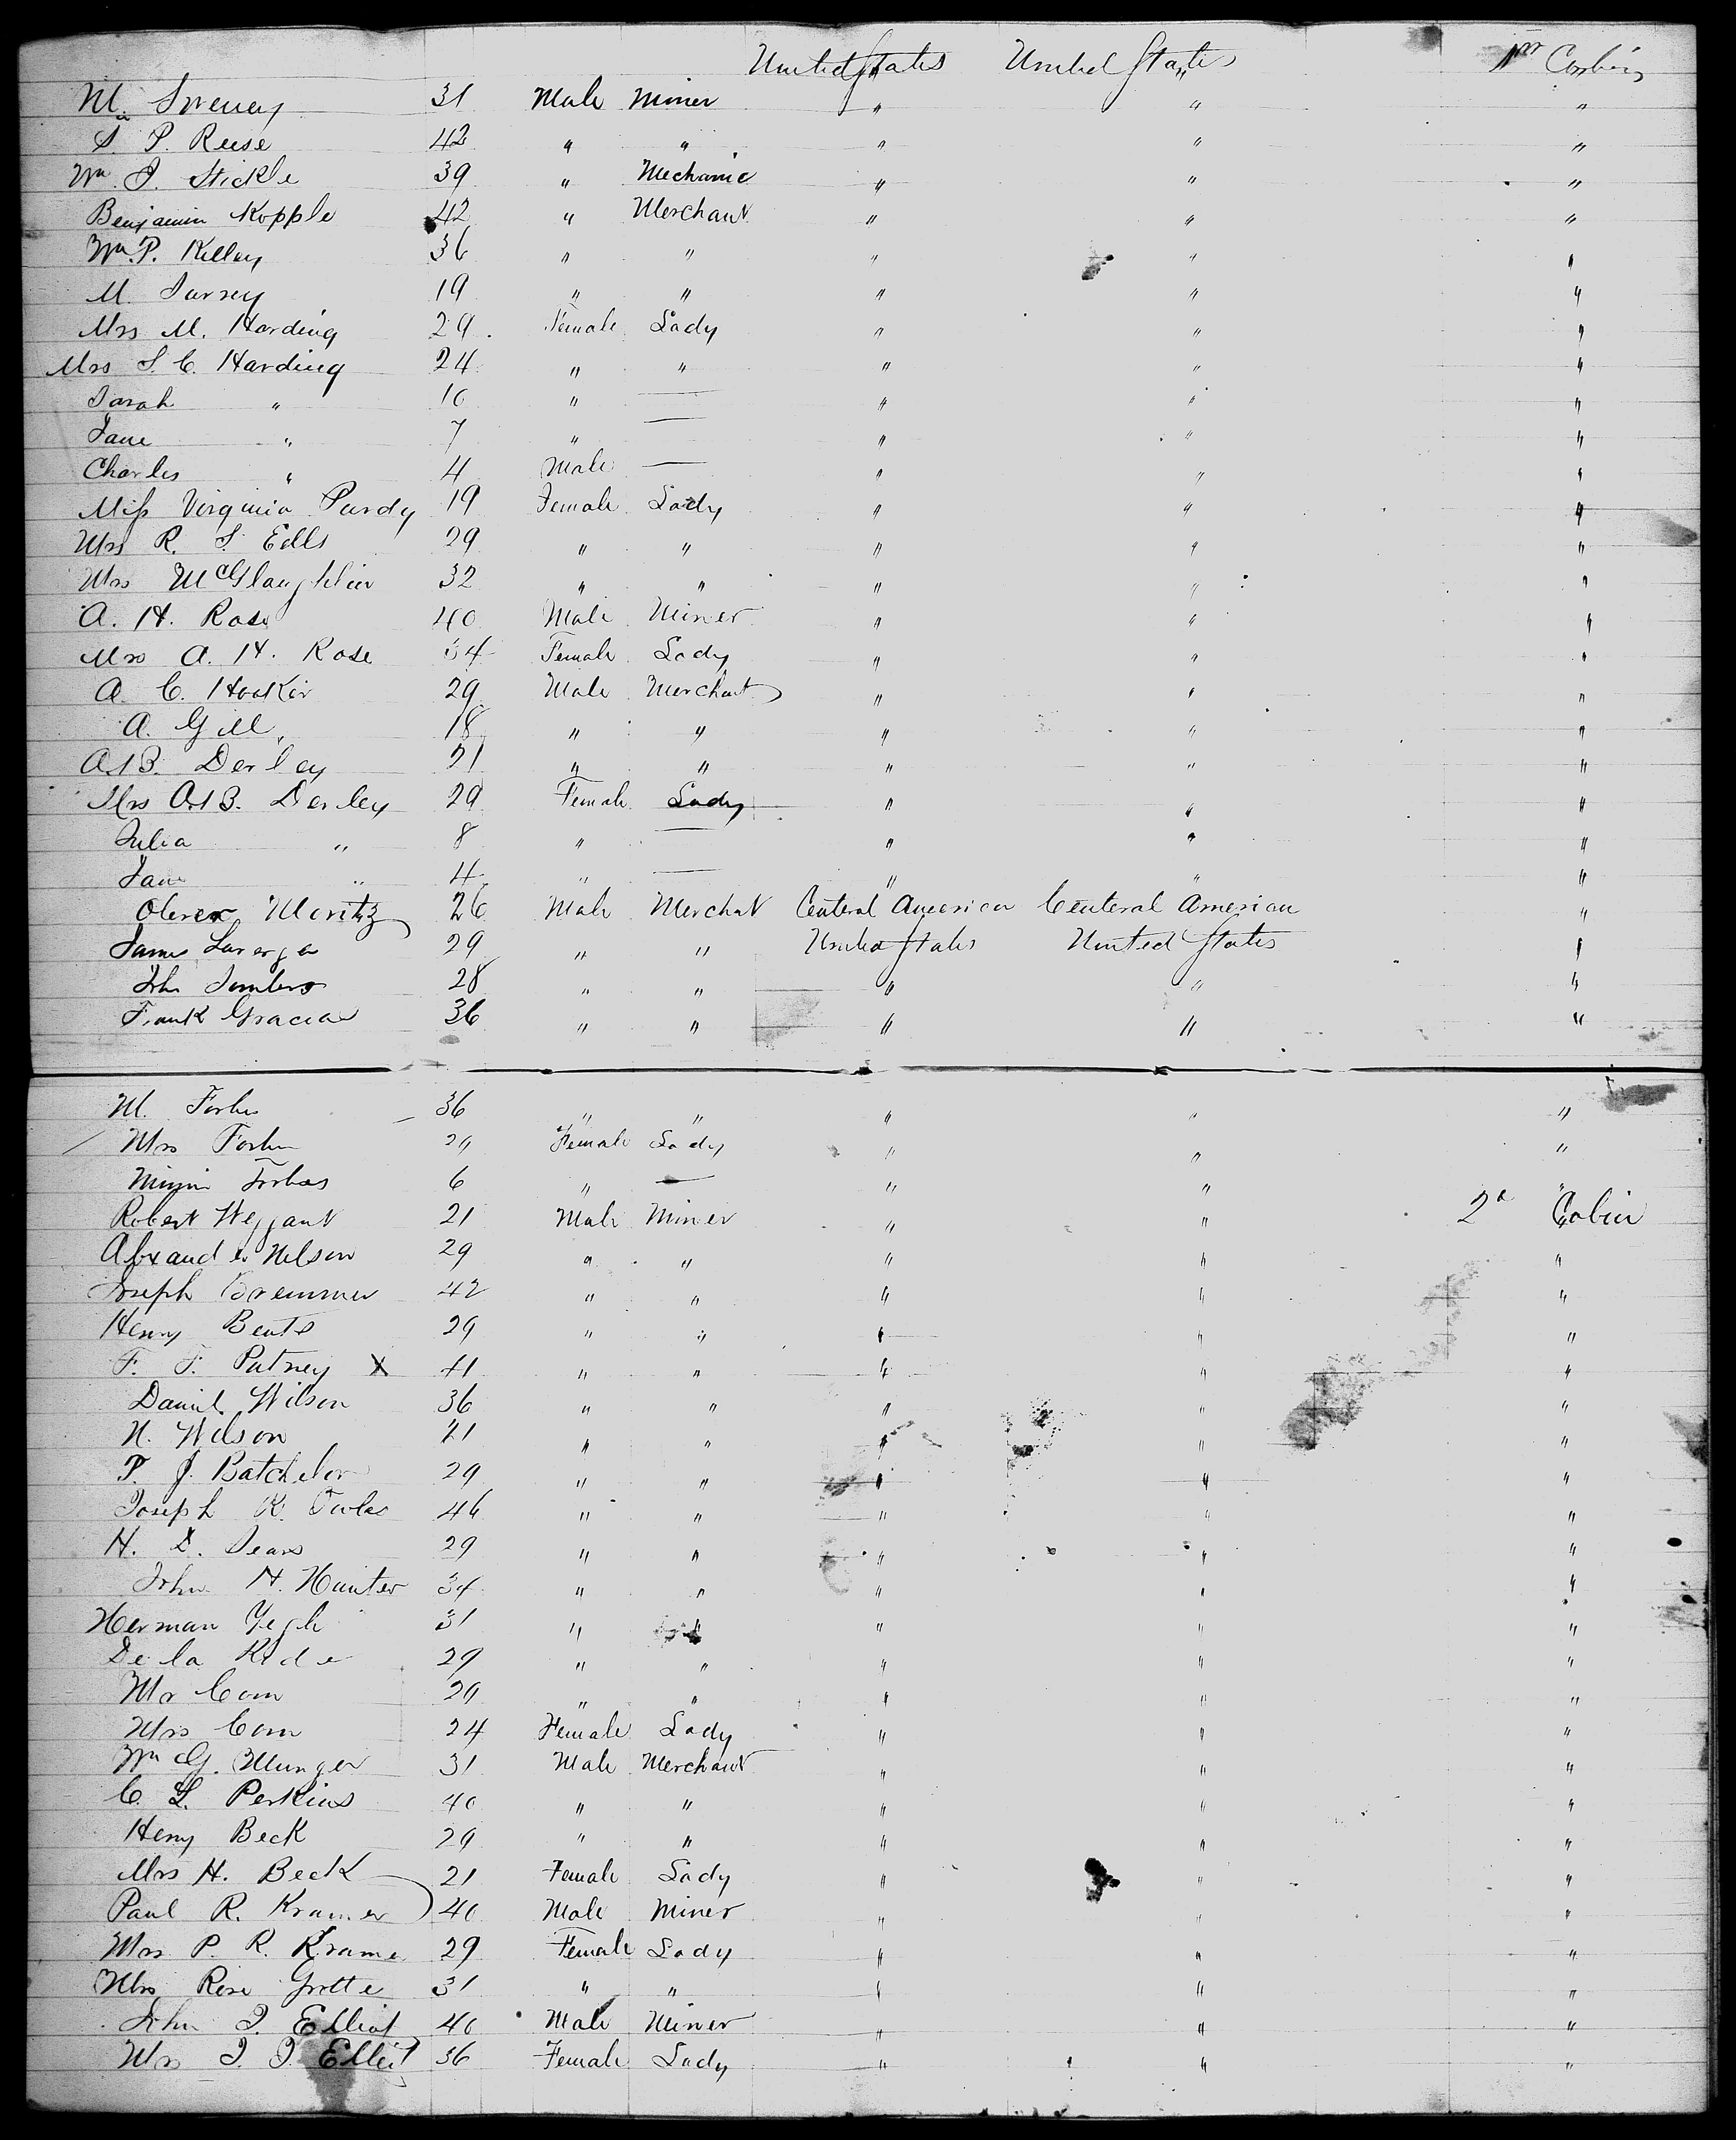 United States United States 1st Cabin
M. Sweney 31 Male Miner " " "
S. P. Reese 42 " " " " "
Wm. J. Stickle 39 " Mechanic " " "
Benjamin Kopple 42 " Merchant " " "
Wm. P. Kelley 36 " " " " "
M. 19 " " " " "
Mrs M. Harding 29 Female Lady " " "
Mrs S. C. Harding 24 " " " " "
Sarah " 10 " — " " "
Jane " 7 " — " " "
Charles " 4 Male — " " "
Miss Virginia Purdy 19 Female Lady " " "
Mrs R. S. Eells 29 " " " " "
Mrs McGlaughlin 32 " " " " "
A. H. Rose 40 Male Miner " " "
Mrs A. H. Rose 34 Female Lady " " "
A. C. Hooker 29 Male Merchant " " "
A. Gill 18 " " " " "
Derley 21 " " " " "
Mrs Derley 29 Female Lady " " "
Julia " 8 " — " " "
Jane " 4 " — " " "
Moritz 26 Male Merchat Centeral American Centeral American "
James 29 " " United States United States "
John 28 " " " " "
Frank Gracia 36 " " " " "
M. Forbes 36 " " " " "
Mrs Forbes 29 Female Lady " " "
Forbes 6 " — " " "
Robert Weygant 21 Male Miner " " 2d Cabin
Alexander Nelson 29 " " " " "
Joseph Bremmer 42 " " " " "
Henry Bents 29 " " " " "
F. F. Putney X 41 " " " " "
Daniel Wilson 36 " " " " "
N. Wilson 21 " " " " "
P. J. Batchelor 29 " " " " "
Joseph K. 46 " " " " "
H. D. Sears 29 " " " " "
John H. Hunter 34 " " " " "
Herman 31 " " " " "
De la 29 " " " " "
Mr Corn 29 " " " " "
Mrs Corn 24 Female Lady " " "
Wm G. Munger 31 Male Merchant " " "
C. L. Perkins 40 " " " " "
Heny Beck 29 " " " " "
Mrs H. Beck 21 Female Lady " " "
Paul R. Kramer 40 Male Miner " " "
Mrs P. R. Krame 29 Female Lady " " "
Mrs Rose Grotte 31 " " " " "
John J. Elliot 40 Male Miner " " "
Mrs J. J. Elliot 36 Female Lady " " "